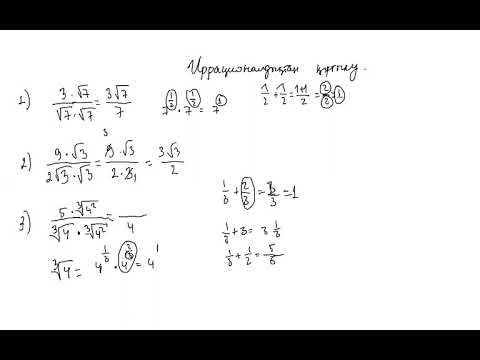 Иррационалдықтан құтылу.
1) \frac{3 \cdot \sqrt{7}}{\sqrt{7} \cdot \sqrt{7}} = \frac{3\sqrt{7}}{7}   7^{\frac{1}{2}} \cdot 7^{\frac{1}{2}} = 7^{1}   \frac{1}{2} + \frac{1}{2} = \frac{1+1}{2} = \frac{2}{2} = 1
2) \frac{9 \cdot \sqrt{3}}{2\sqrt{3} \cdot \sqrt{3}} = \frac{9^{3} \cdot \sqrt{3}}{2 \cdot 3_{1}} = \frac{3\sqrt{3}}{2}
\frac{1}{3} + \frac{2}{3} = \frac{3}{3} = 1
3) \frac{5 \cdot \sqrt[3]{4^{2}}}{\sqrt[3]{4} \cdot \sqrt[3]{4^{2}}} = \frac{}{4}
\frac{1}{3} + 3 = 3 \frac{1}{3}
\frac{1}{3} + \frac{1}{2} = \frac{5}{6}
\sqrt[3]{4} = 4^{\frac{1}{3}} \cdot 4^{\frac{2}{3}} = 4^{1}